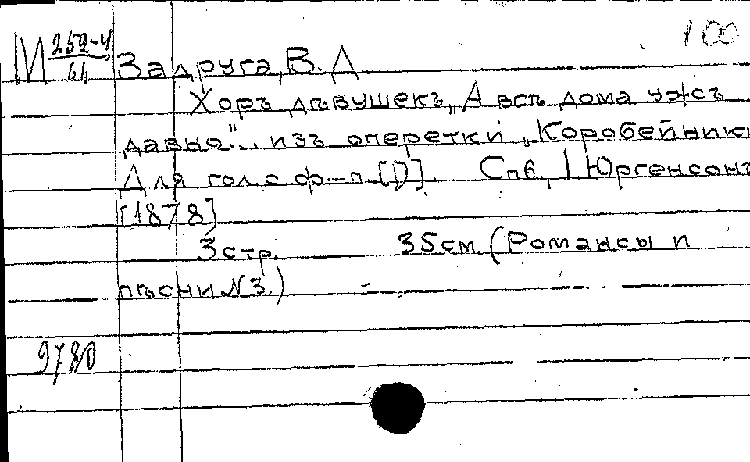 100
М 252-4/61 Задруга, В. Д
Хоръ дѣвушекъ "А всѣ дома ужъ
давно".. изъ оперетки "Коробейник
Для гол. с ф-п. [D]. Спб, I Юргенсонъ
[1878]
3 стр. 35 см. (Романсы и
пѣсни №3.)
9780